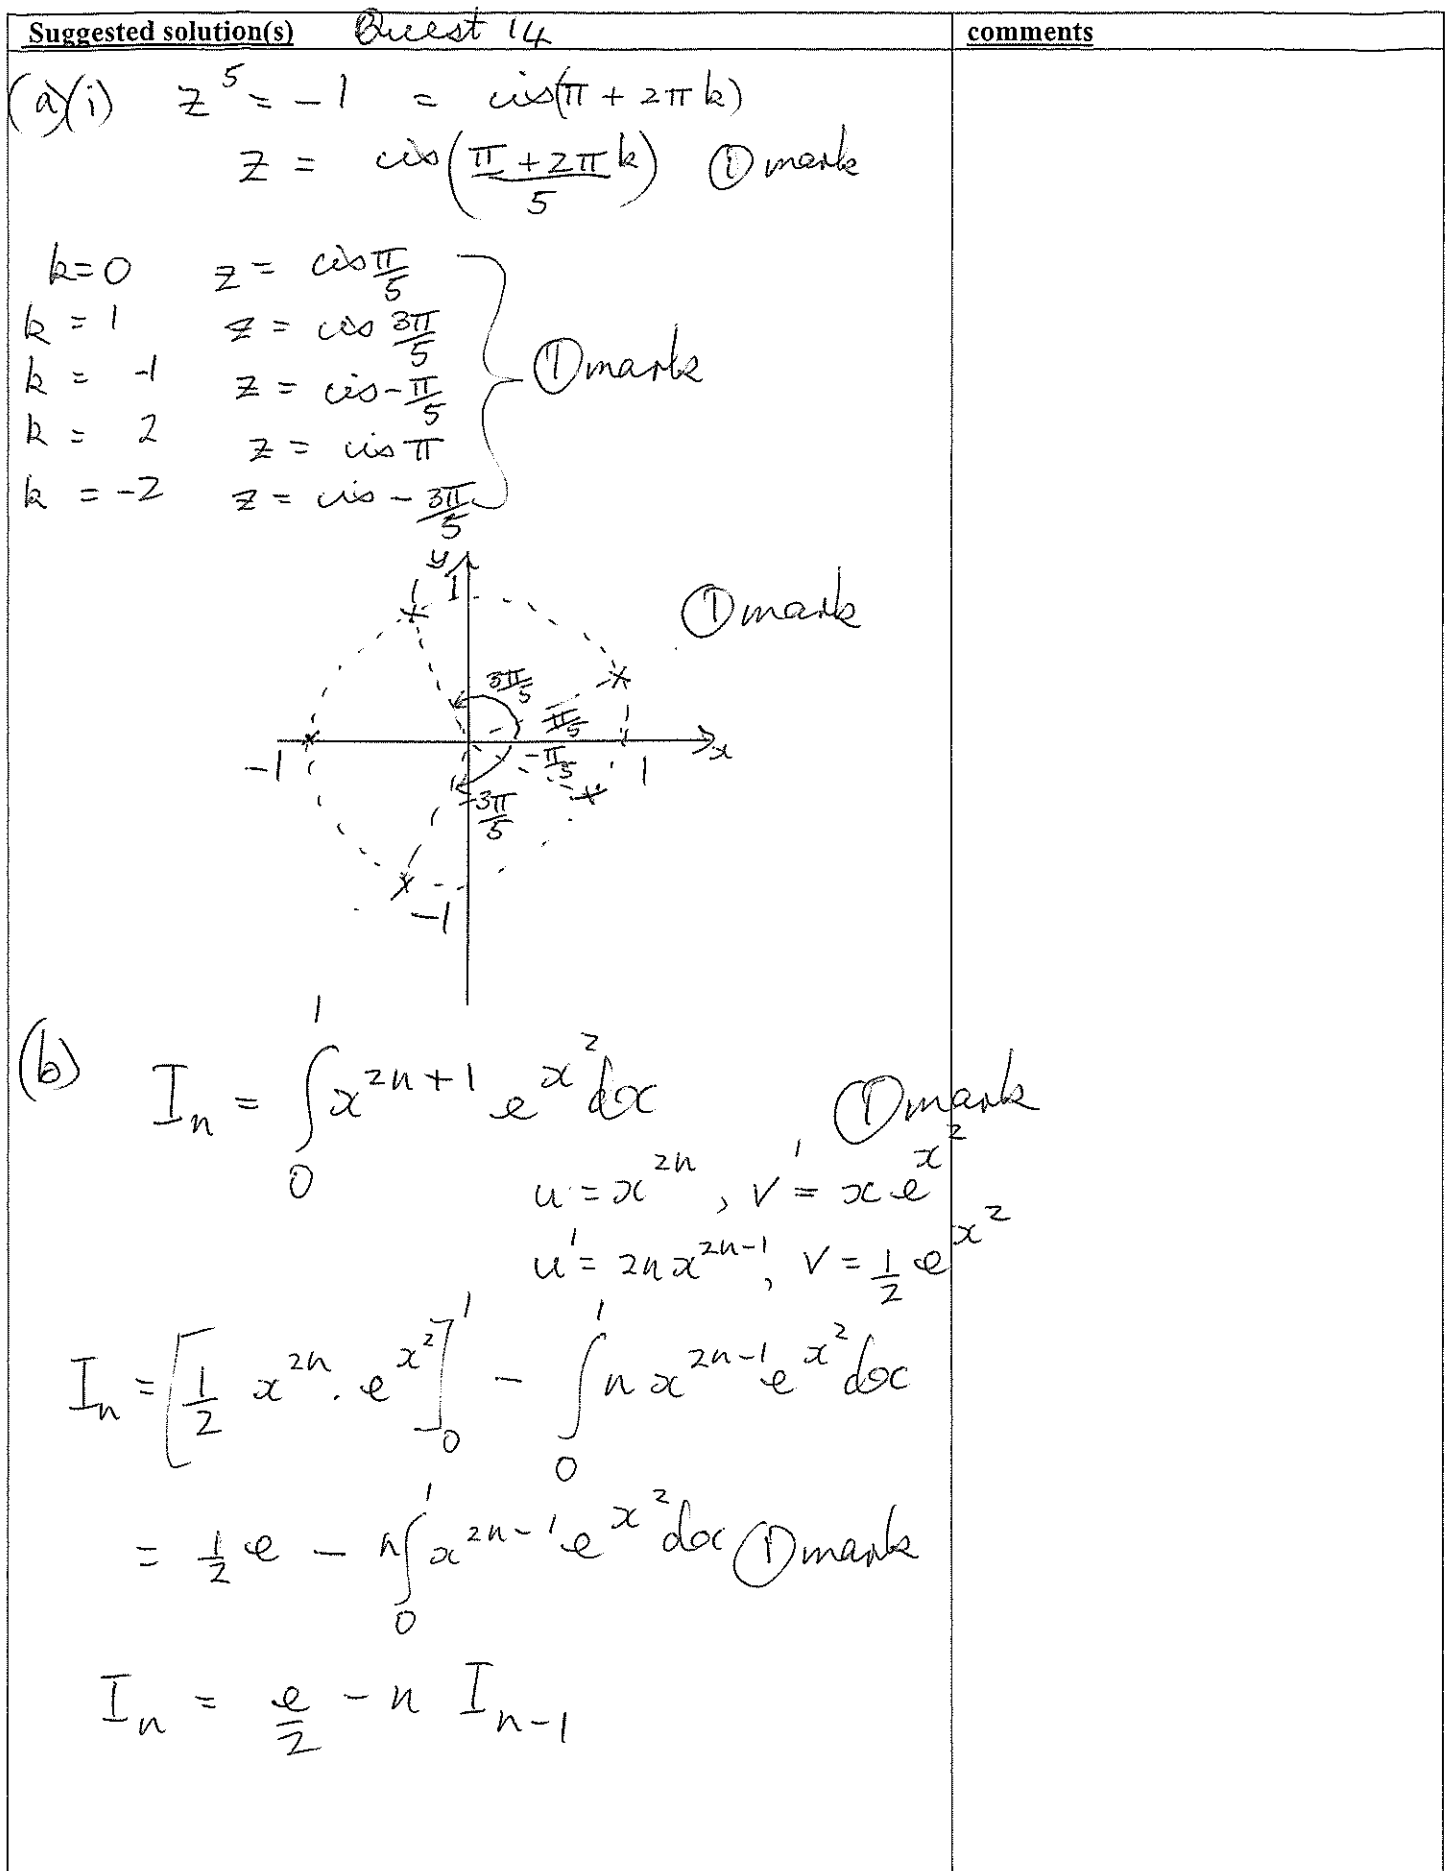 Suggested solution(s) Quest 14 comments
(a)(i) z⁵ = -1 = cis(π + 2πk)
z = cis((π + 2πk)/5) ① mark
k=0 z = cis π/5
k = 1 z = cis 3π/5
k = -1 z = cis -π/5
① mark
k = 2 z = cis π
k = -2 z = cis -3π/5
y
1
① mark
3π/5
π/5
-1 -π/5 1 x
-3π/5
-1
(b) Iₙ = ∫₀¹ x²ⁿ⁺¹ e^(x²) dx ① mark
u = x²ⁿ, v' = x e^(x²)
u' = 2n x²ⁿ⁻¹, v = 1/2 e^(x²)
Iₙ = [1/2 x²ⁿ . e^(x²)]₀¹ - ∫₀¹ n x²ⁿ⁻¹ e^(x²) dx
= 1/2 e - n∫₀¹ x²ⁿ⁻¹ e^(x²) dx ① mark
Iₙ = e/2 - n Iₙ₋₁